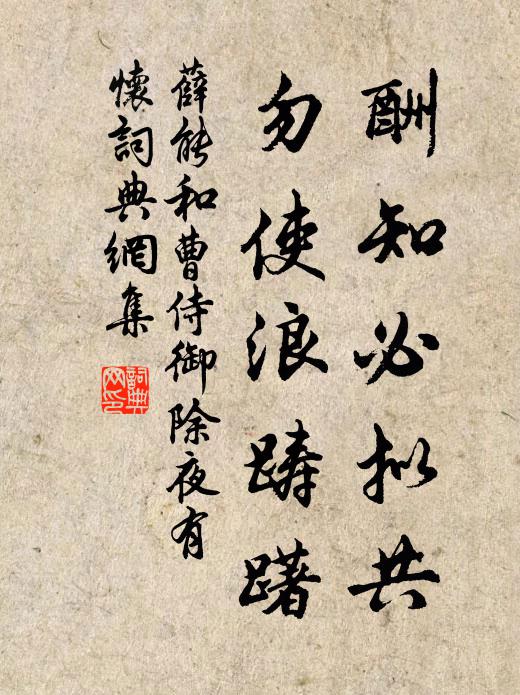 酬知必拟共
勿使浪踌躇
薛能和曹侍御除夜有
懷詞典網集
詞典
网印